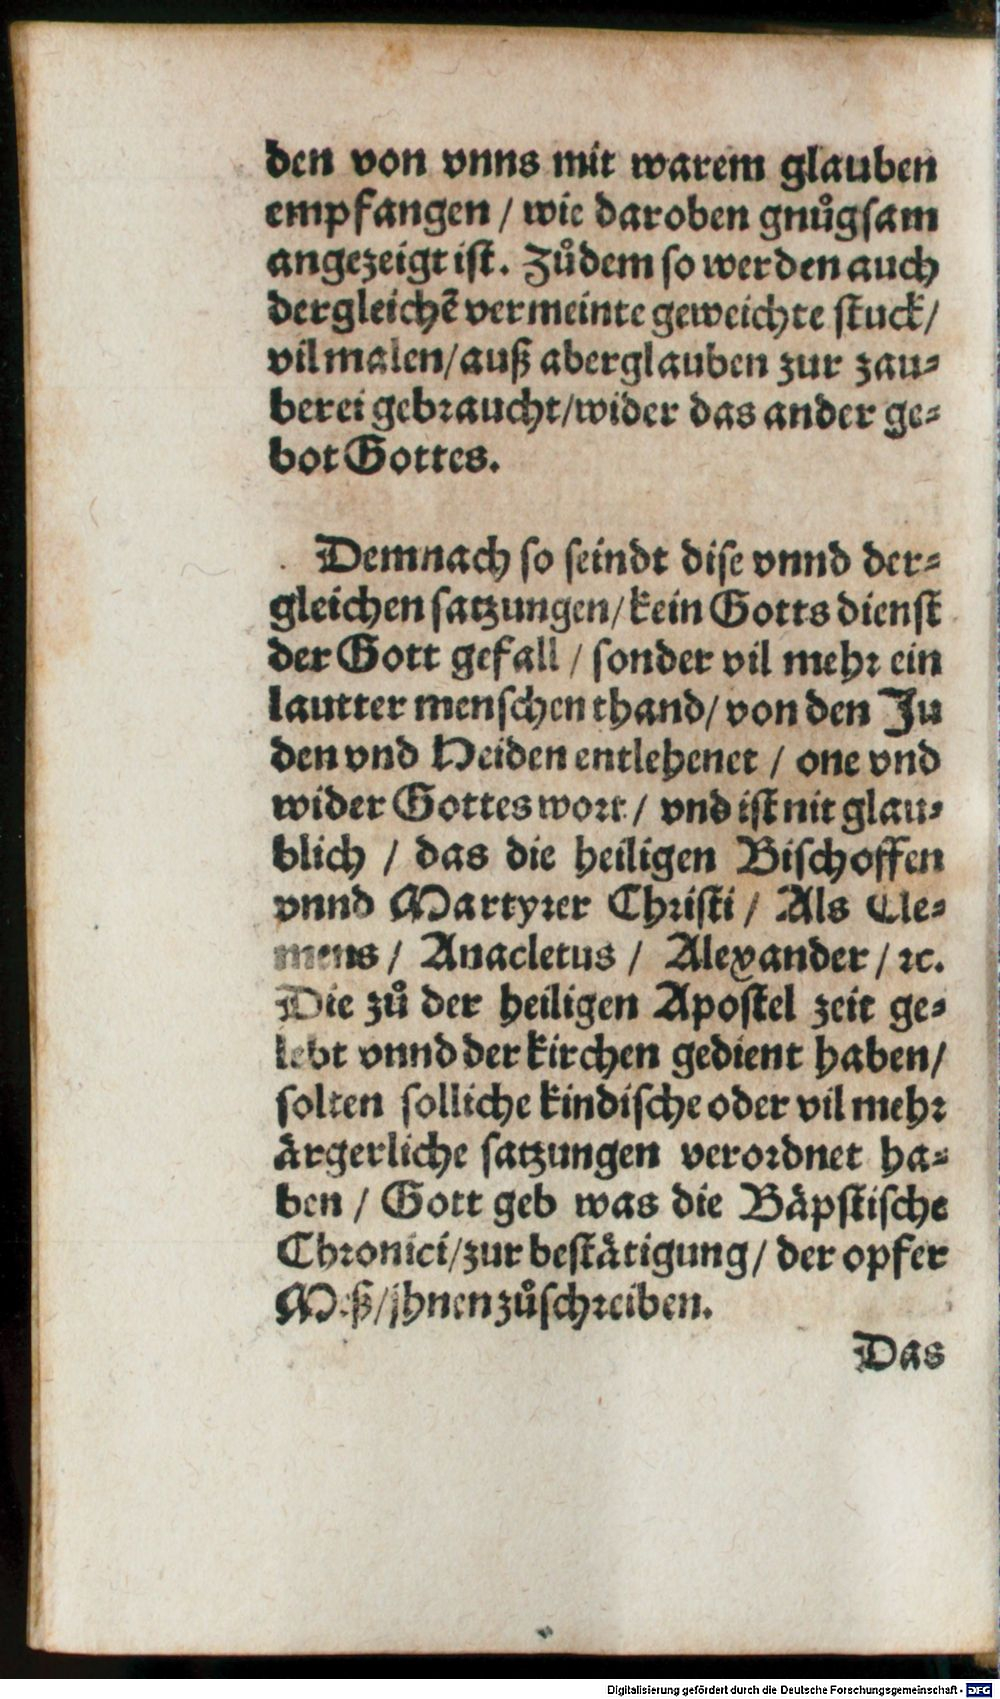 den von vnns mit warem glauben
empfangen / wie daroben gnůgsam
angezeigt ist. Zůdem so werden auch
dergleichẽ vermeinte geweichte stuck/
vil malen/ auß aberglauben zur zau⸗
berei gebraucht/wider das ander ge⸗
bot Gottes.
Demnach so seindt dise vnnd der⸗
gleichen satzungen/ kein Gotts dienst
der Gott gefall / sonder vil mehr ein
lautter menschen thand/ von den Ju
den vnd Heiden entlehenet / one vnd
wider Gottes wort / vnd ist nit glau⸗
blich / das die heiligen Bischoffen
vnnd Martyrer Christi / Als Cle⸗
mens / Anacletus / Alexander / ꝛc.
Die zů der heiligen Apostel zeit ge⸗
lebt vnnd der kirchen gedient haben/
solten solliche kindische oder vil mehr
aͤrgerliche satzungen verordnet ha⸗
ben / Gott geb was die Baͤpstische
Chronici/zur bestaͤtigung/ der opfer
Meß/jhnen zůschreiben.
Das
Digitalisierung gefördert durch die Deutsche Forschungsgemeinschaft - DFG